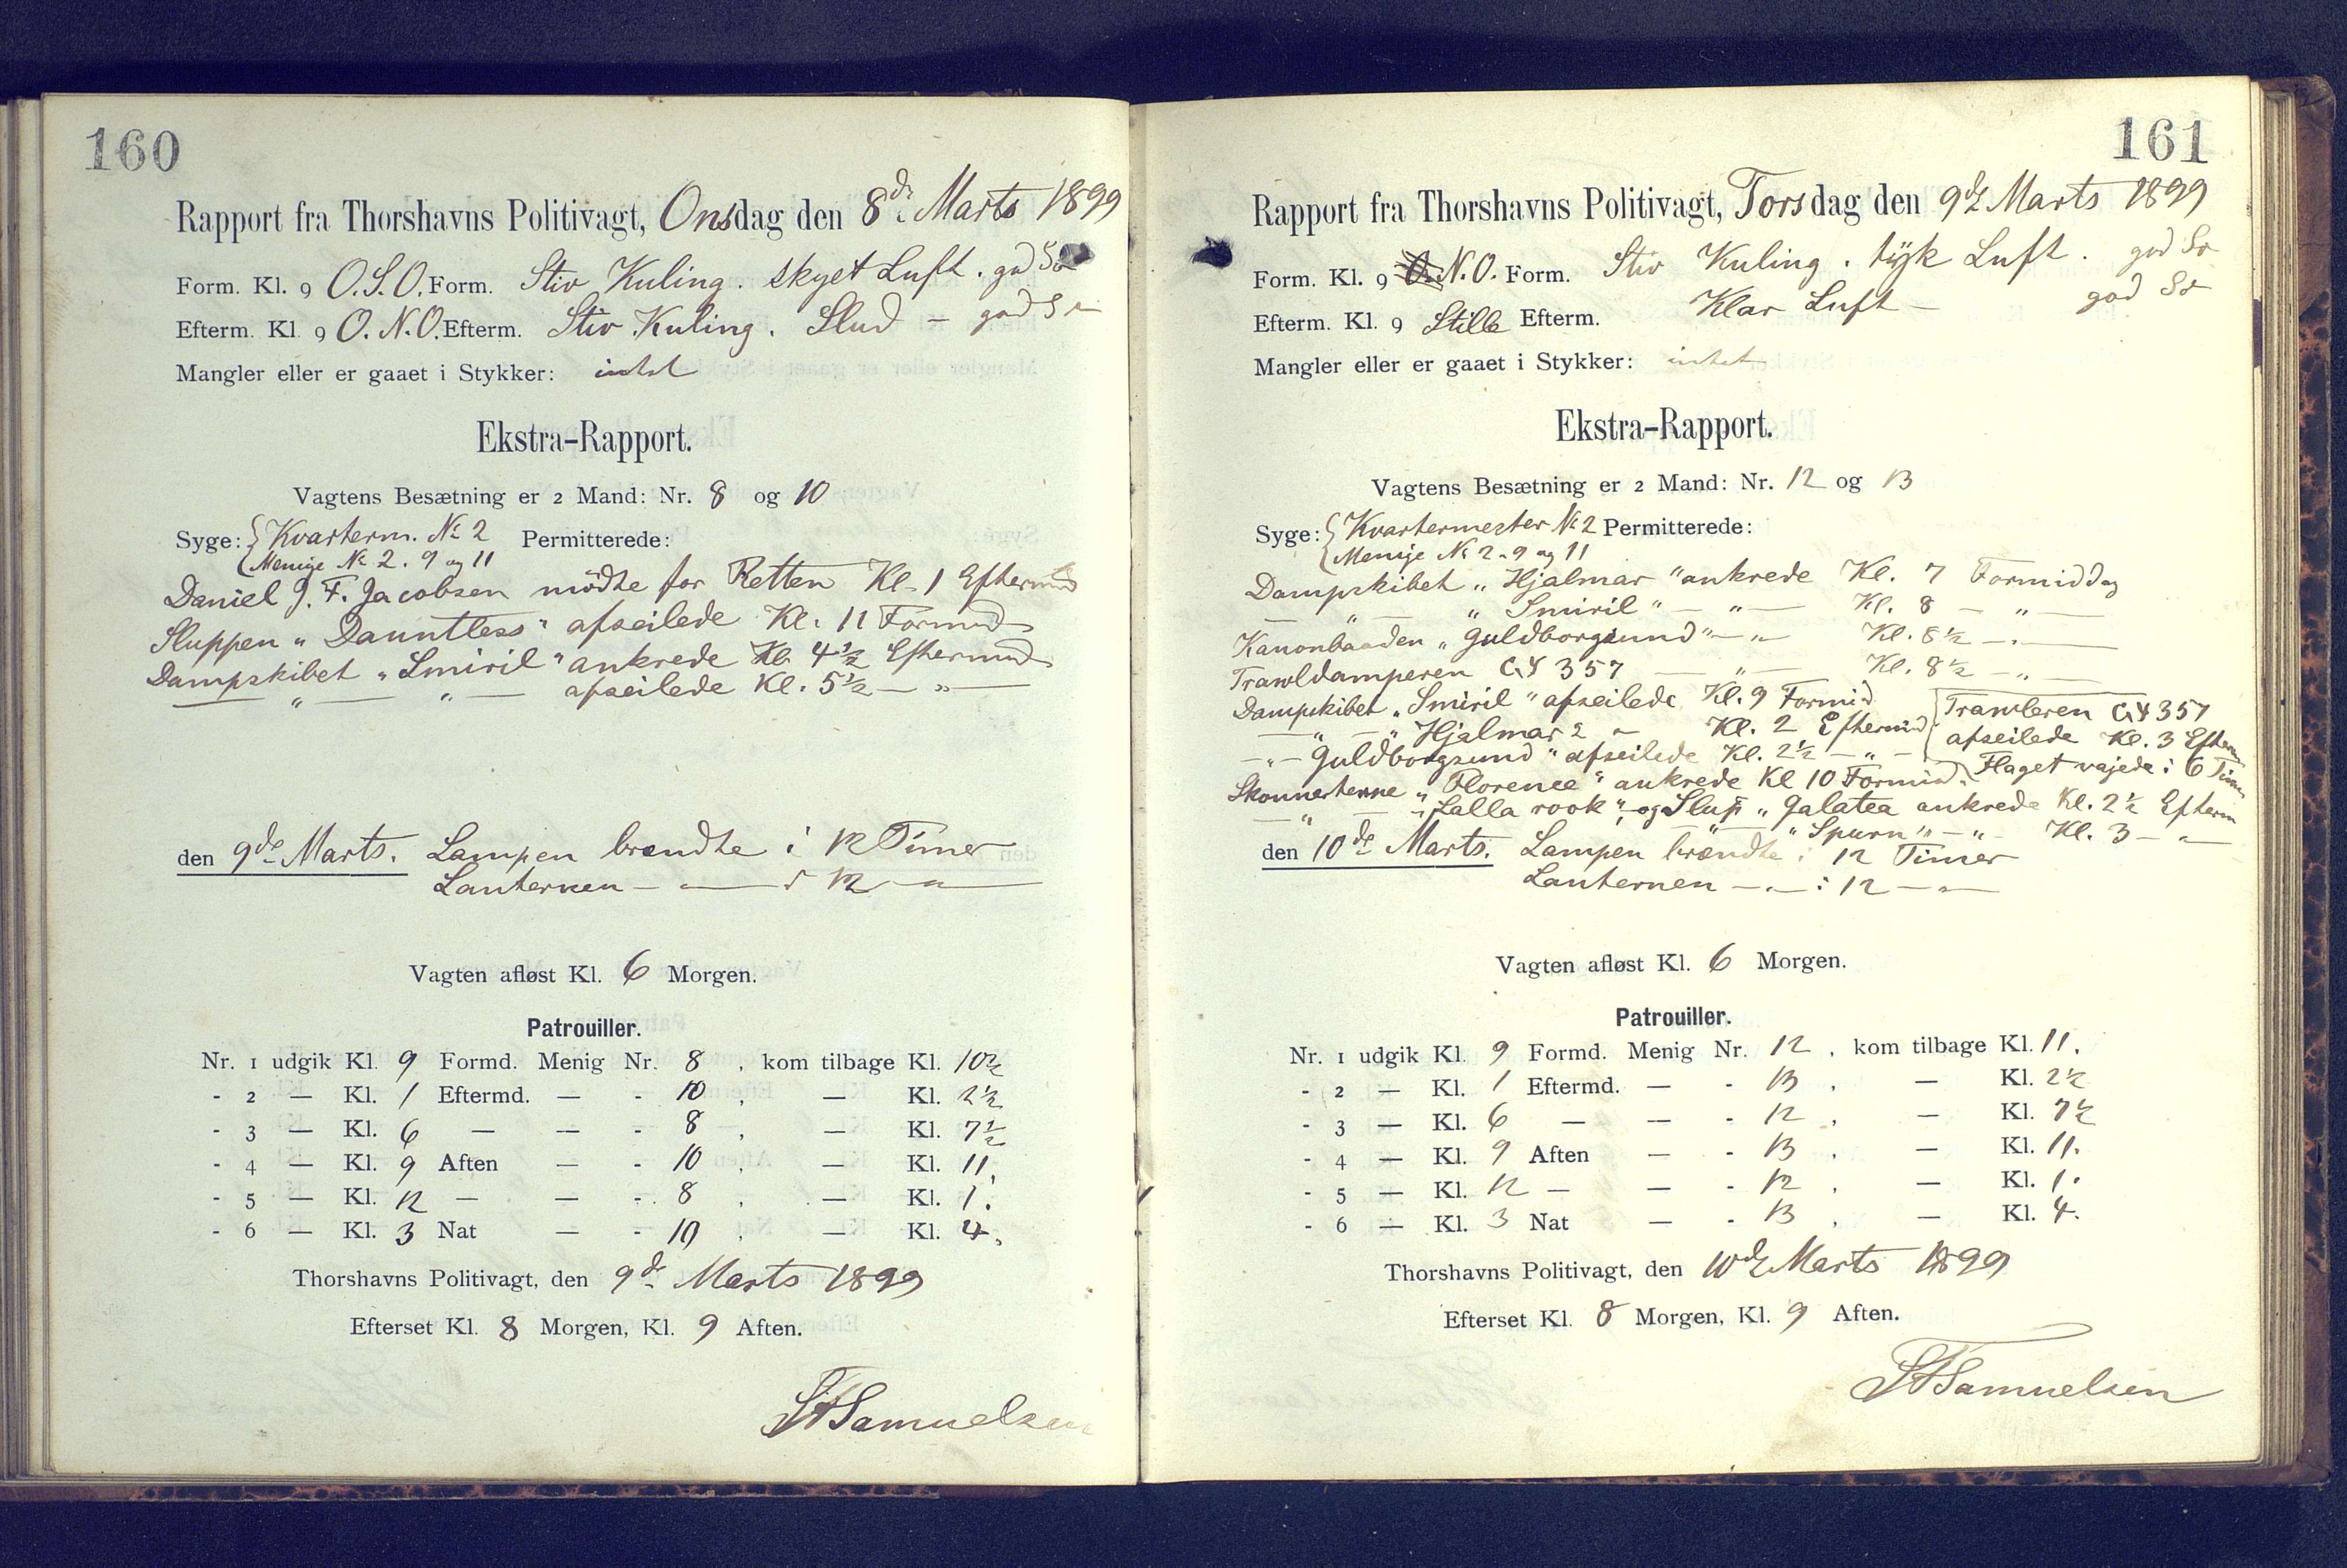 160
Rapport fra Thorshavns Politivagt, Onsdag den 8de Marts 1899
Form. Kl. 9 O.S.O. Form. Stiv Kuling. skyet Luft. god Sø
Efterm. Kl. 9 O.N.O. Efterm. Stiv Kuling. Slud – god Sø
Mangler eller er gaaet i Stykker: intet
Ekstra-Rapport.
Vagtens Besætning er 2 Mand: Nr. 8 og 10
Syge: { Kvarterm. № 2 Permitterede:
Menige № 2. 9 og 11
Daniel J. F. Jacobsen mødte for Retten Kl. 1 Eftermid
Sluppen „Dauntless" afseilede Kl. 11 Formid
Dampskibet „Smiril" ankrede Kl. 4½ Eftermid
— „ — „ — afseilede Kl. 5½ — „ —
den 9de Marts. Lampen brændte i 12 Timer
Lanternen — „ — i 12 — „ —
Vagten afløst Kl. 6 Morgen.
Patrouiller.
Nr. 1 udgik Kl. 9 Formd. Menig Nr. 8, kom tilbage Kl. 10½
- 2 — Kl. 1 Eftermd. — - 10, — Kl. 2½
- 3 — Kl. 6 — — - 8, — Kl. 7½
- 4 — Kl. 9 Aften — - 10, — Kl. 11.
- 5 — Kl. 12 — — - 8, — Kl. 1.
- 6 — Kl. 3 Nat — - 10, — Kl. 4.
Thorshavns Politivagt, den 9de Marts 1899
Efterset Kl. 8 Morgen, Kl. 9 Aften.
Samuelsen
161
Rapport fra Thorshavns Politivagt, Torsdag den 9de Marts 1899
Form. Kl. 9 N.O. Form. Stiv Kuling. tyk Luft. god Sø
Efterm. Kl. 9 Stille Efterm. Klar Luft – god Sø
Mangler eller er gaaet i Stykker: intet
Ekstra-Rapport.
Vagtens Besætning er 2 Mand: Nr. 12 og 13
Syge: { Kvartermester № 2 Permitterede:
Menige № 2. 9 og 11
Dampskibet „Hjalmar" ankrede Kl. 7 Formiddag
— „ — „Smiril" — „ — Kl. 8 — „ —
Kanonbaaden „Guldborgsund" — „ — Kl. 8½ — „ —
Trawldamperen GY 357 — „ — Kl. 8½ — „ —
Dampskibet „Smiril" afseilede Kl. 9 Formid
— „ — „Hjalmar" — „ Kl. 2 Eftermid { Trawleren GY 357
— „ — Guldborgsund" afseilede Kl. 2½ — „ — afseilede Kl. 3 Efterm
Skonnerterne „Florence" ankrede Kl 10 Formid. Flaget vajede i 6 Timer
— „ — „Lalla rook", og Slup „Galatea ankrede Kl. 2½ Efterm
„Spurn" — „ — Kl. 3 — „ —
den 10de Marts. Lampen brændte i 12 Timer
Lanternen — „ — i 12 — „ —
Vagten afløst Kl. 6 Morgen.
Patrouiller.
Nr. 1 udgik Kl. 9 Formd. Menig Nr. 12, kom tilbage Kl. 11.
- 2 — Kl. 1 Eftermd. — - 13, — Kl. 2½
- 3 — Kl. 6 — — - 12, — Kl. 7½
- 4 — Kl. 9 Aften — - 13, — Kl. 11.
- 5 — Kl. 12 — — - 12, — Kl. 1.
- 6 — Kl. 3 Nat — - 13, — Kl. 4.
Thorshavns Politivagt, den 10de Marts 1899
Efterset Kl. 8 Morgen, Kl. 9 Aften.
Samuelsen